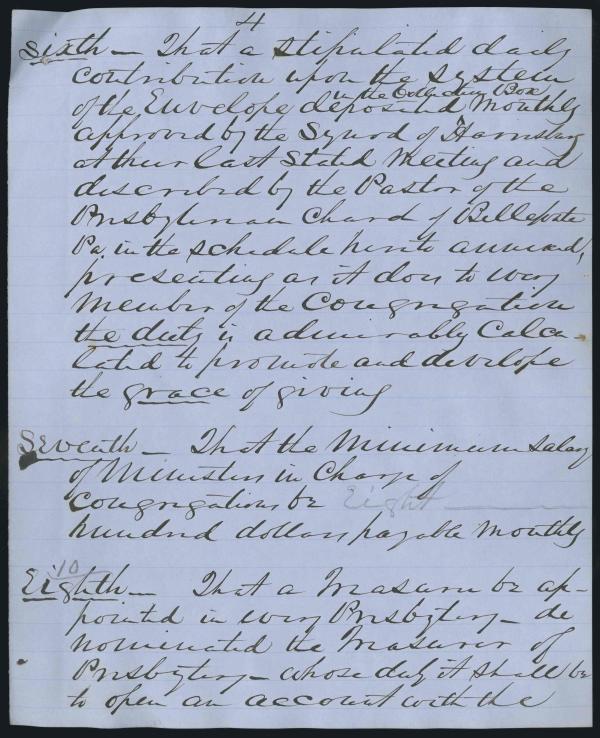 4
Sixth — That a stipulated daily
contribution upon the System
in the Collection Box
of the Envelope deposited Monthly
approved by the Synod of Harrisburg
at their last Stated Meeting and
described by the Pastor of the
Presbyterian Church of Bellefonte
Pa. in the schedule hereto annexed,
presenting as it does to every
Member of the Congregation
the duty is admirably Calcu-
lated to promote and develope
the grace of giving
Seventh — That the Minimum salary
of Ministers in Charge of
Congregations be Eight
hundred dollars payable Monthly
10
Eighth — That a Treasurer be ap-
pointed in every Presbytery — de
nominated the Treasurer of
Presbytery — whose duty it shall be
to open an account with the